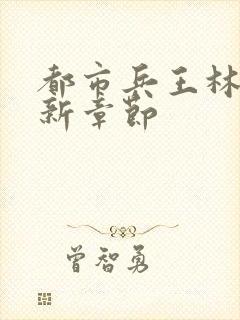 都市兵王林
新章节
曾智勇